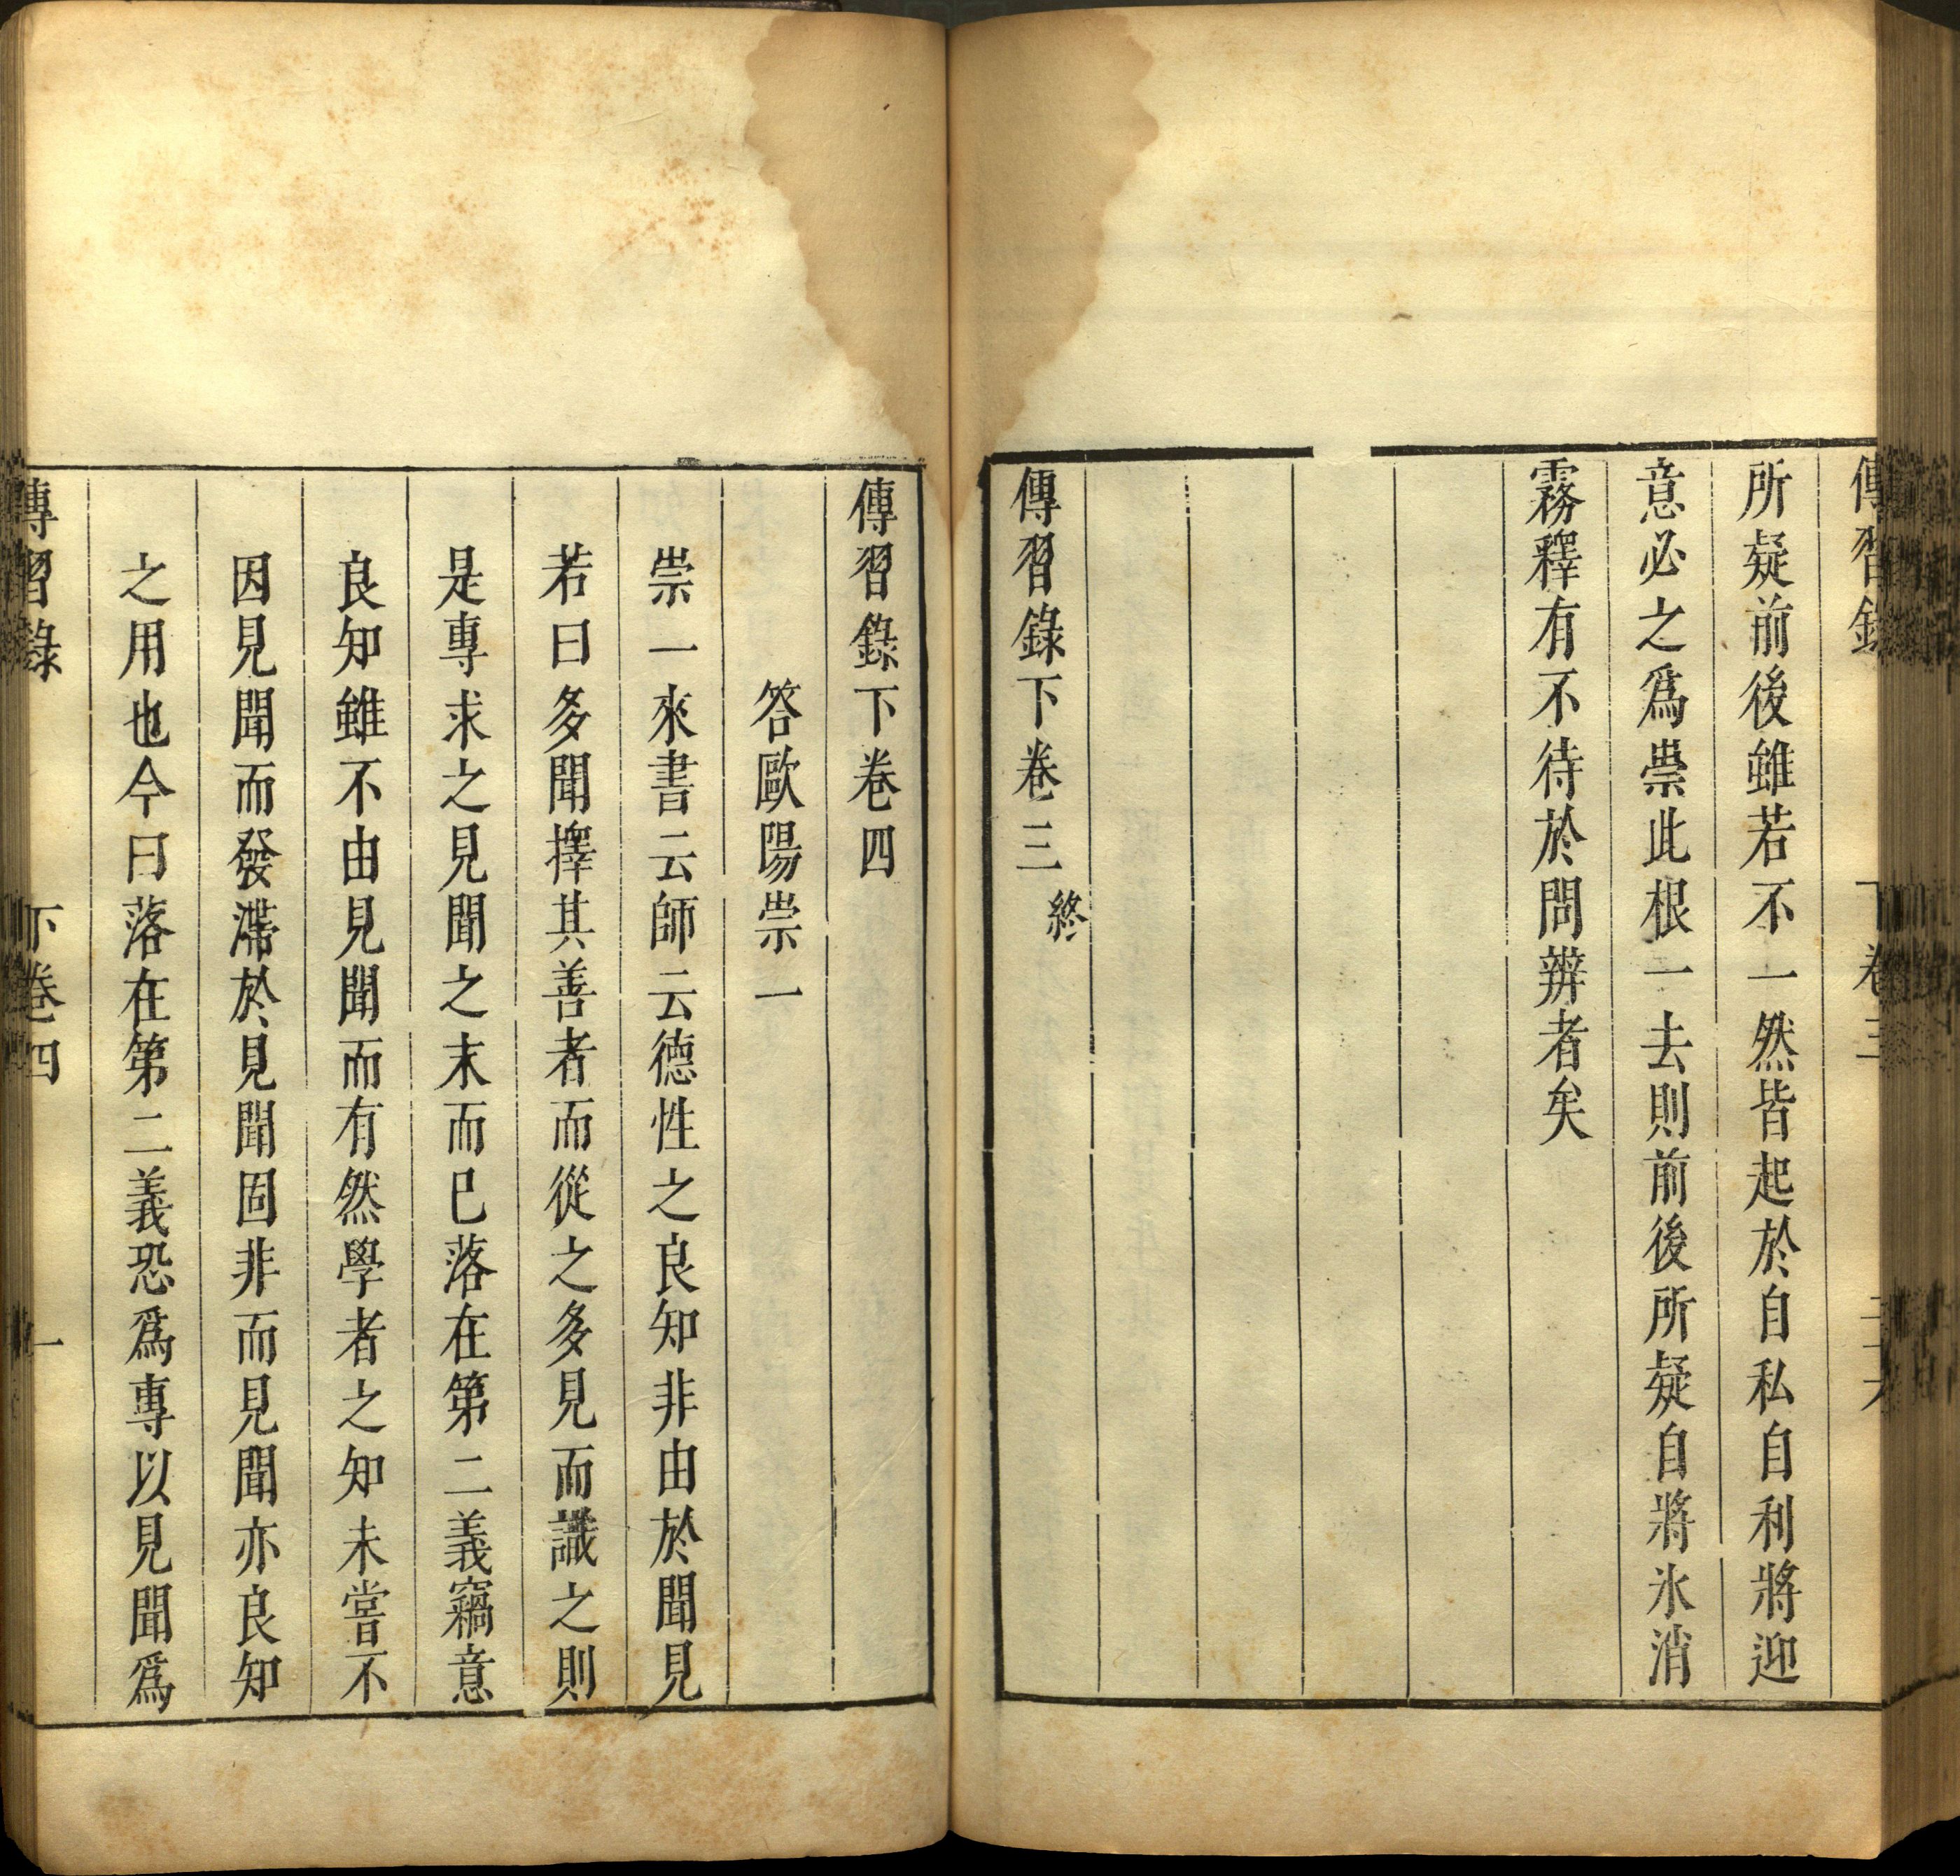 傳習錄 下卷三
所疑前後雖若不一然皆起於自私自利將迎
意必之爲祟此根一去則前後所疑自將氷消
霧釋有不待於問辨者矣
傳習錄下卷三終
傳習錄下卷四
答歐陽崇一
崇一來書云師云德性之良知非由於聞見
若曰多聞擇其善者而從之多見而識之則
是專求之見聞之末而已落在第二義竊意
良知雖不由見聞而有然學者之知未嘗不
因見聞而發滯於見聞固非而見聞亦良知
之用也今曰落在第二義恐爲專以見聞爲
傳習錄 下卷四 一